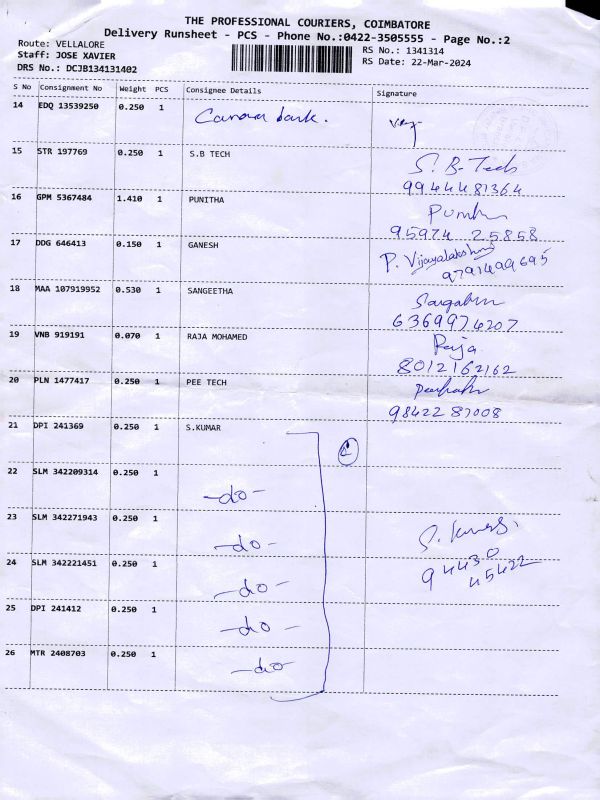 THE PROFESSIONAL COURIERS, COIMBATORE
Delivery Runsheet - PCS - Phone No.:0422-3505555 - Page No.:2
Route: VELLALORE
Staff: JOSE XAVIER
DRS No.: DCJB134131402
RS No.: 1341314
RS Date: 22-Mar-2024
S No Consignment No Weight PCS Consignee Details Signature
14 EDQ 13539250 0.250 1 Canara bank.
15 STR 197769 0.250 1 S.B TECH S.B-Tech
9944481364
16 GPM 5367484 1.410 1 PUNITHA
95974 25858
17 DDG 646413 0.150 1 GANESH P. Vijayalakshmi
9791499695
18 MAA 107919952 0.530 1 SANGEETHA
6369974207
19 VNB 919191 0.070 1 RAJA MOHAMED Raja
8012162162
20 PLN 1477417 0.250 1 PEE TECH
98422 87008
21 DPI 241369 0.250 1 S.KUMAR
22 SLM 342209314 0.250 1 -do-
23 SLM 342271943 0.250 1 -do- S. Kumar
24 SLM 342221451 0.250 1 -do- 94430
45422
25 DPI 241412 0.250 1 -do-
26 MTR 2408703 0.250 1 -do-